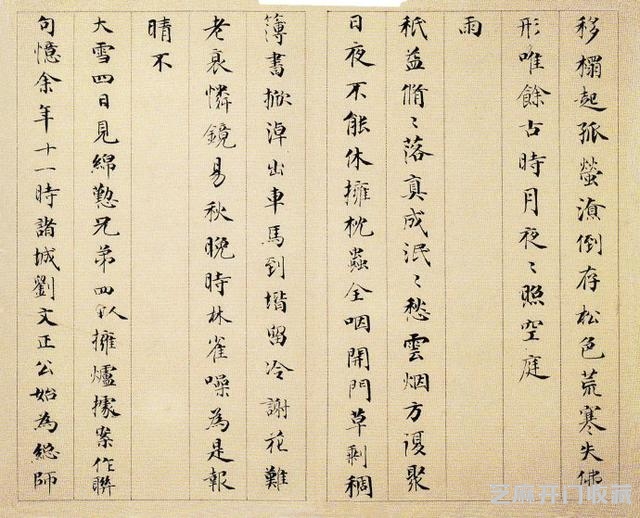 移榻起孤螢潦倒存松色荒寒失佛
形唯餘古時月夜〻照空庭
雨
秖益翛〻落真成泯〻愁雲烟方復聚
日夜不能休擁枕蟲全咽開門草剩稠
簿書掀淖出車馬到堦留冷謝花難
老衰憐鏡易秋晚時林雀噪為是報
晴不
大雪四日見綿懃兄弟四以擁爐據案作聯
句憶余年十一時諸城劉文正公始為總師